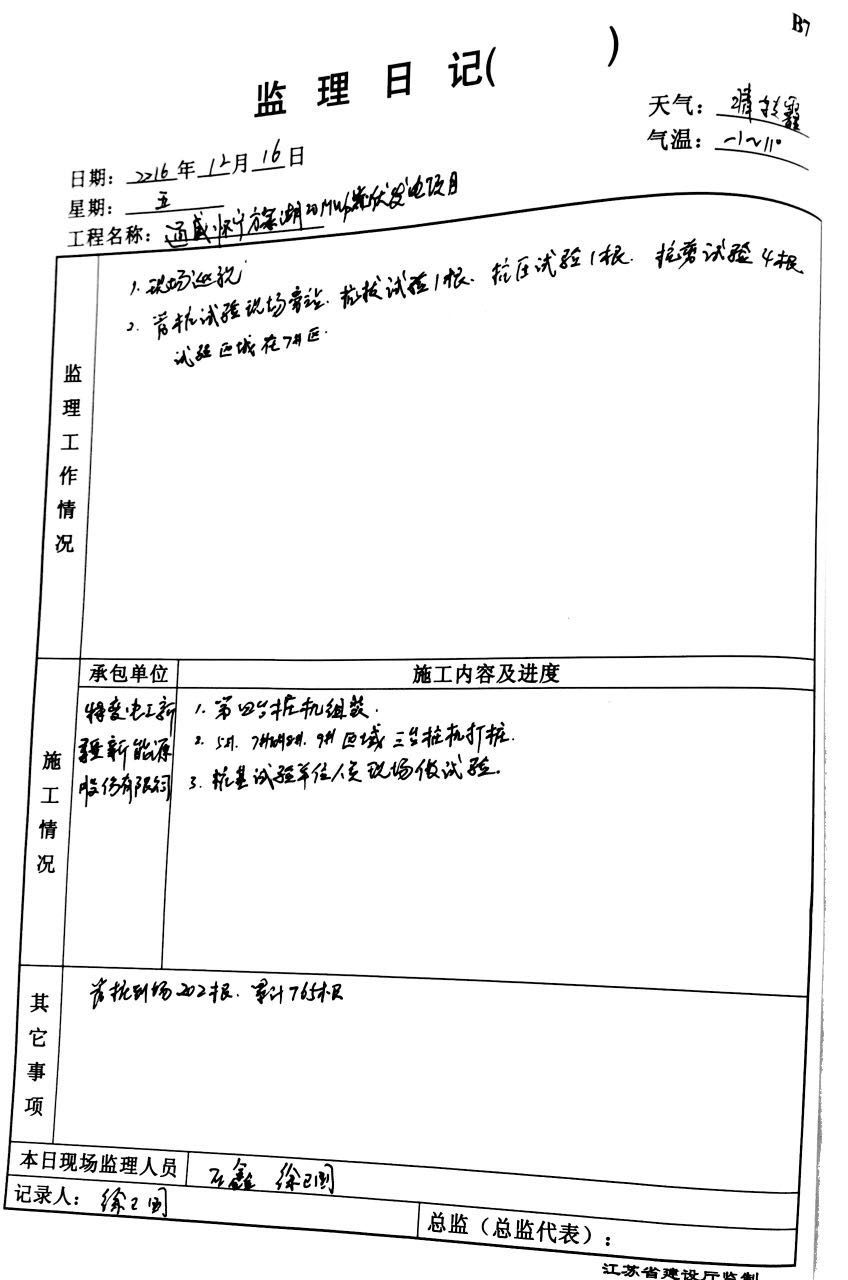 B7
监 理 日 记( )
天气: 晴转霾
气温: -1~11°
日期: 2216年12月16日
星期: 五
工程名称: 通威怀宁方洲湖20MWp光伏发电项目
监理工作情况
1. 现场巡视
2. 管桩试验现场旁站. 抗拔试验1根. 抗压试验1根. 抗剪试验4根
试验区域在7#区.
承包单位
施工内容及进度
施工情况
特变电工新
疆新能源
股份有限公司
1. 第四台桩机组装.
2. 5#. 7#、8#. 9#区域三台桩机打桩.
3. 桩基试验单位人员现场做试验.
其它事项
管桩到场202根. 累计765根
本日现场监理人员
石鑫 徐卫国
记录人: 徐卫国
总监（总监代表）:
江苏省建设厅监制